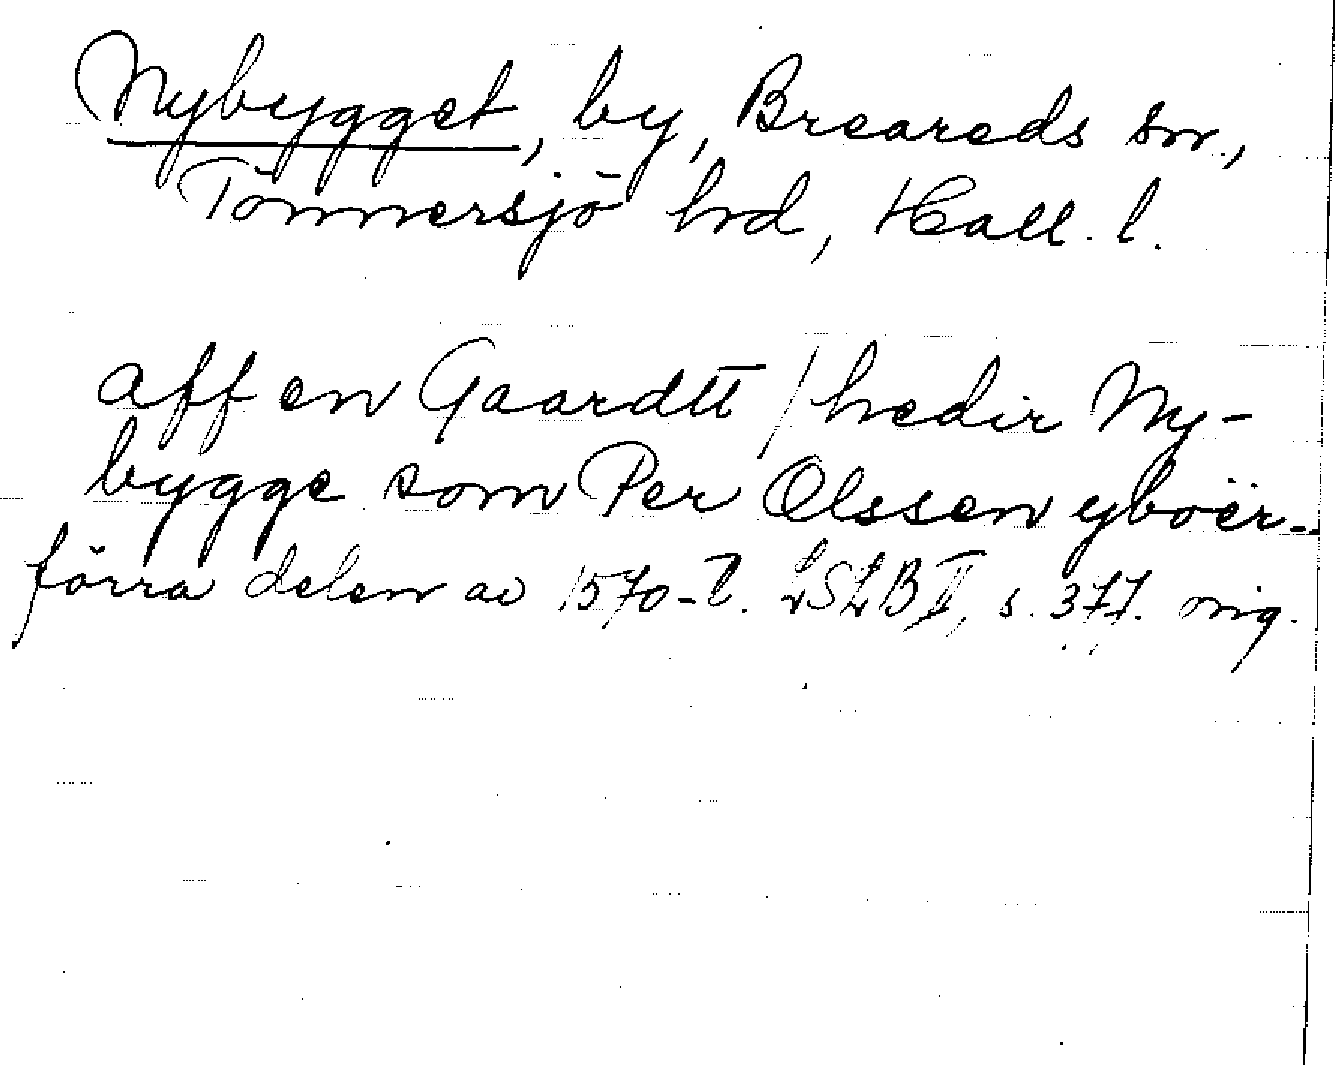 Nybygget, by, Breareds sn.,
Tönnersjö hd, Hall. l.
aff en Gaardtt / hedir Ny-
bygge som Per Olssen yboër.
förra delen av 1570-t. LSLB II, s. 377. orig.